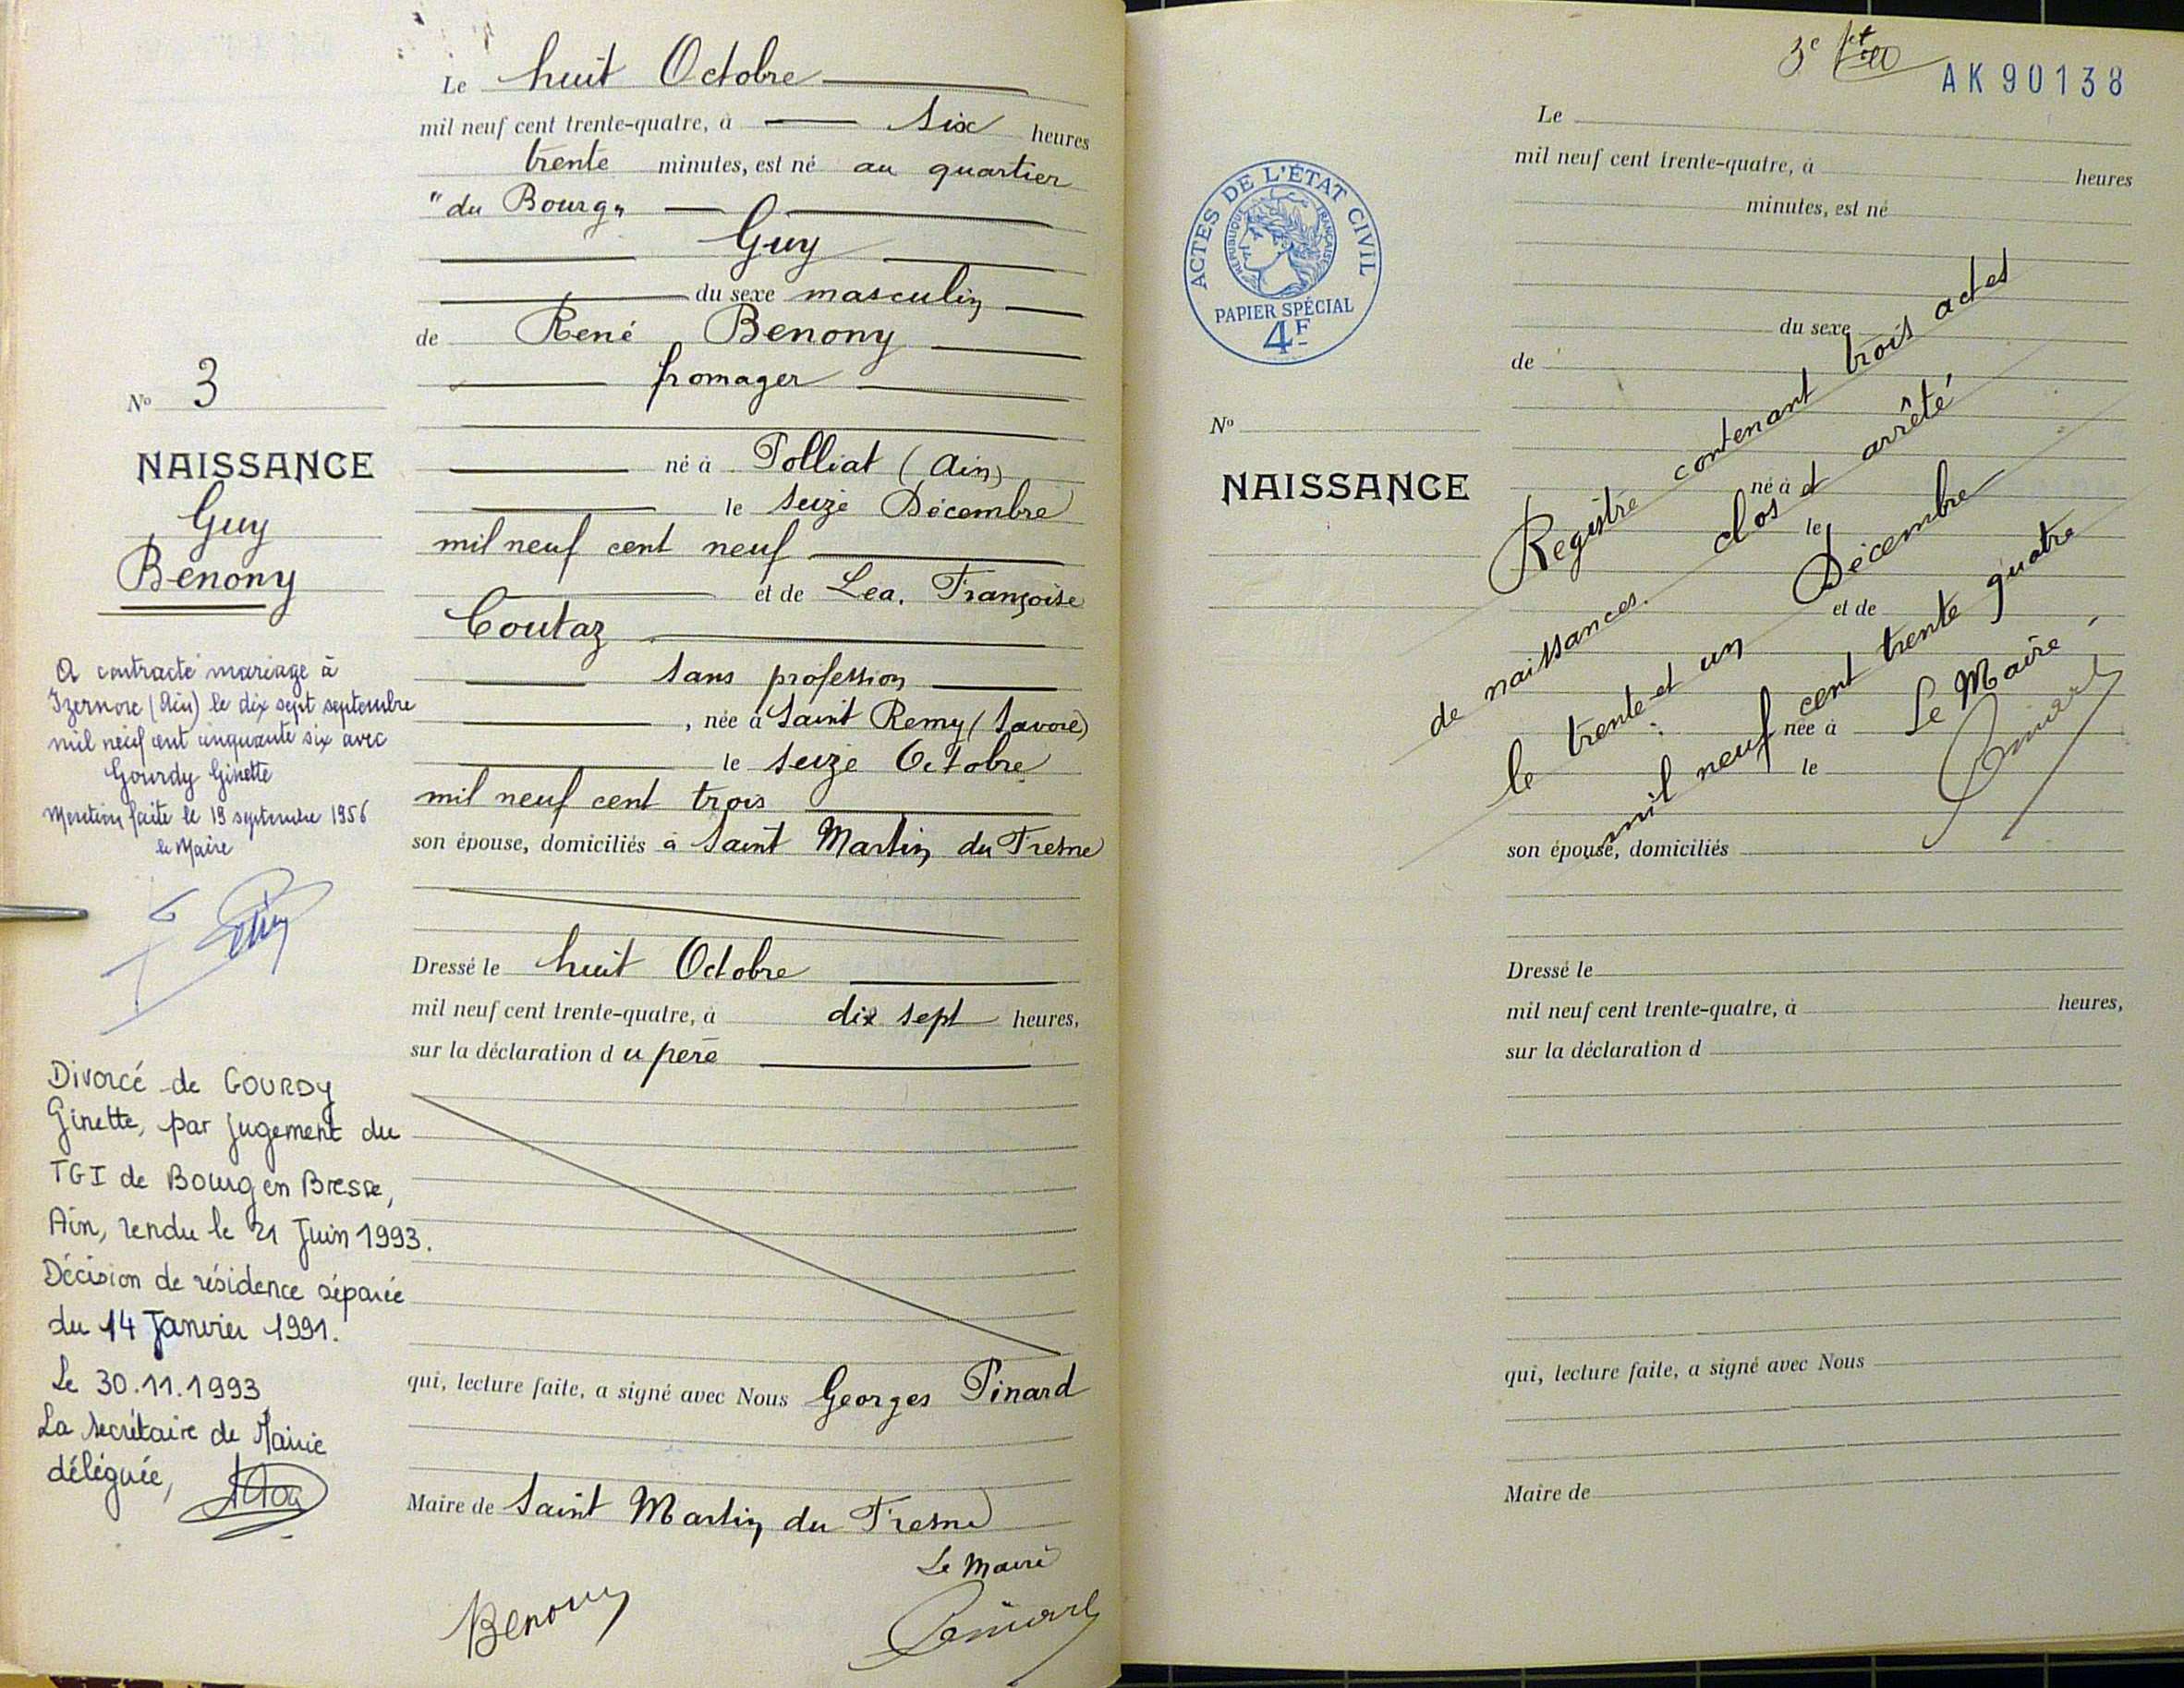 Le huit Octobre
mil neuf cent trente-quatre, à six heures
trente minutes, est né au quartier
"du Bourg"
Guy
du sexe masculin
de René Benony
fromager
né à Polliat (Ain)
le seize Décembre
mil neuf cent neuf
et de Lea, Françoise
Coutaz
sans profession
, née à Saint Remy (Savoie)
le seize Octobre
mil neuf cent trois
son épouse, domiciliés à Saint Martin du Fresne
Dressé le huit Octobre
mil neuf cent trente-quatre, à dix sept heures,
sur la déclaration du père
qui, lecture faite, a signé avec Nous Georges Pinard
Maire de Saint Martin du Fresne
Le Maire
Benony
No 3
NAISSANCE
Guy
Benony
A contracté mariage à
Izernore (Ain) le dix sept septembre
mil neuf cent cinquante six avec
Gourdy Ginette
Mention faite le 19 septembre 1956
le Maire
Divorcé de GOURDY
Ginette, par jugement du
TGI de Bourg en Bresse,
Ain, rendu le 21 Juin 1993.
Décision de résidence séparée
du 14 Janvier 1991.
Le 30.11.1993
La secrétaire de Mairie
déléguée,
3e
AK90138
ACTES DE L'ÉTAT CIVIL
RÉPUBLIQUE FRANÇAISE
PAPIER SPÉCIAL
4F
No
NAISSANCE
Le
mil neuf cent trente-quatre, à heures
minutes, est né
du sexe
de
né à
le
et de
née à
le
son épouse, domiciliés
Dressé le
mil neuf cent trente-quatre, à heures,
sur la déclaration d
qui, lecture faite, a signé avec Nous
Maire de
Registre contenant trois actes
de naissances. clos et arrêté
le trente et un Décembre
mil neuf cent trente quatre
Le Maire,